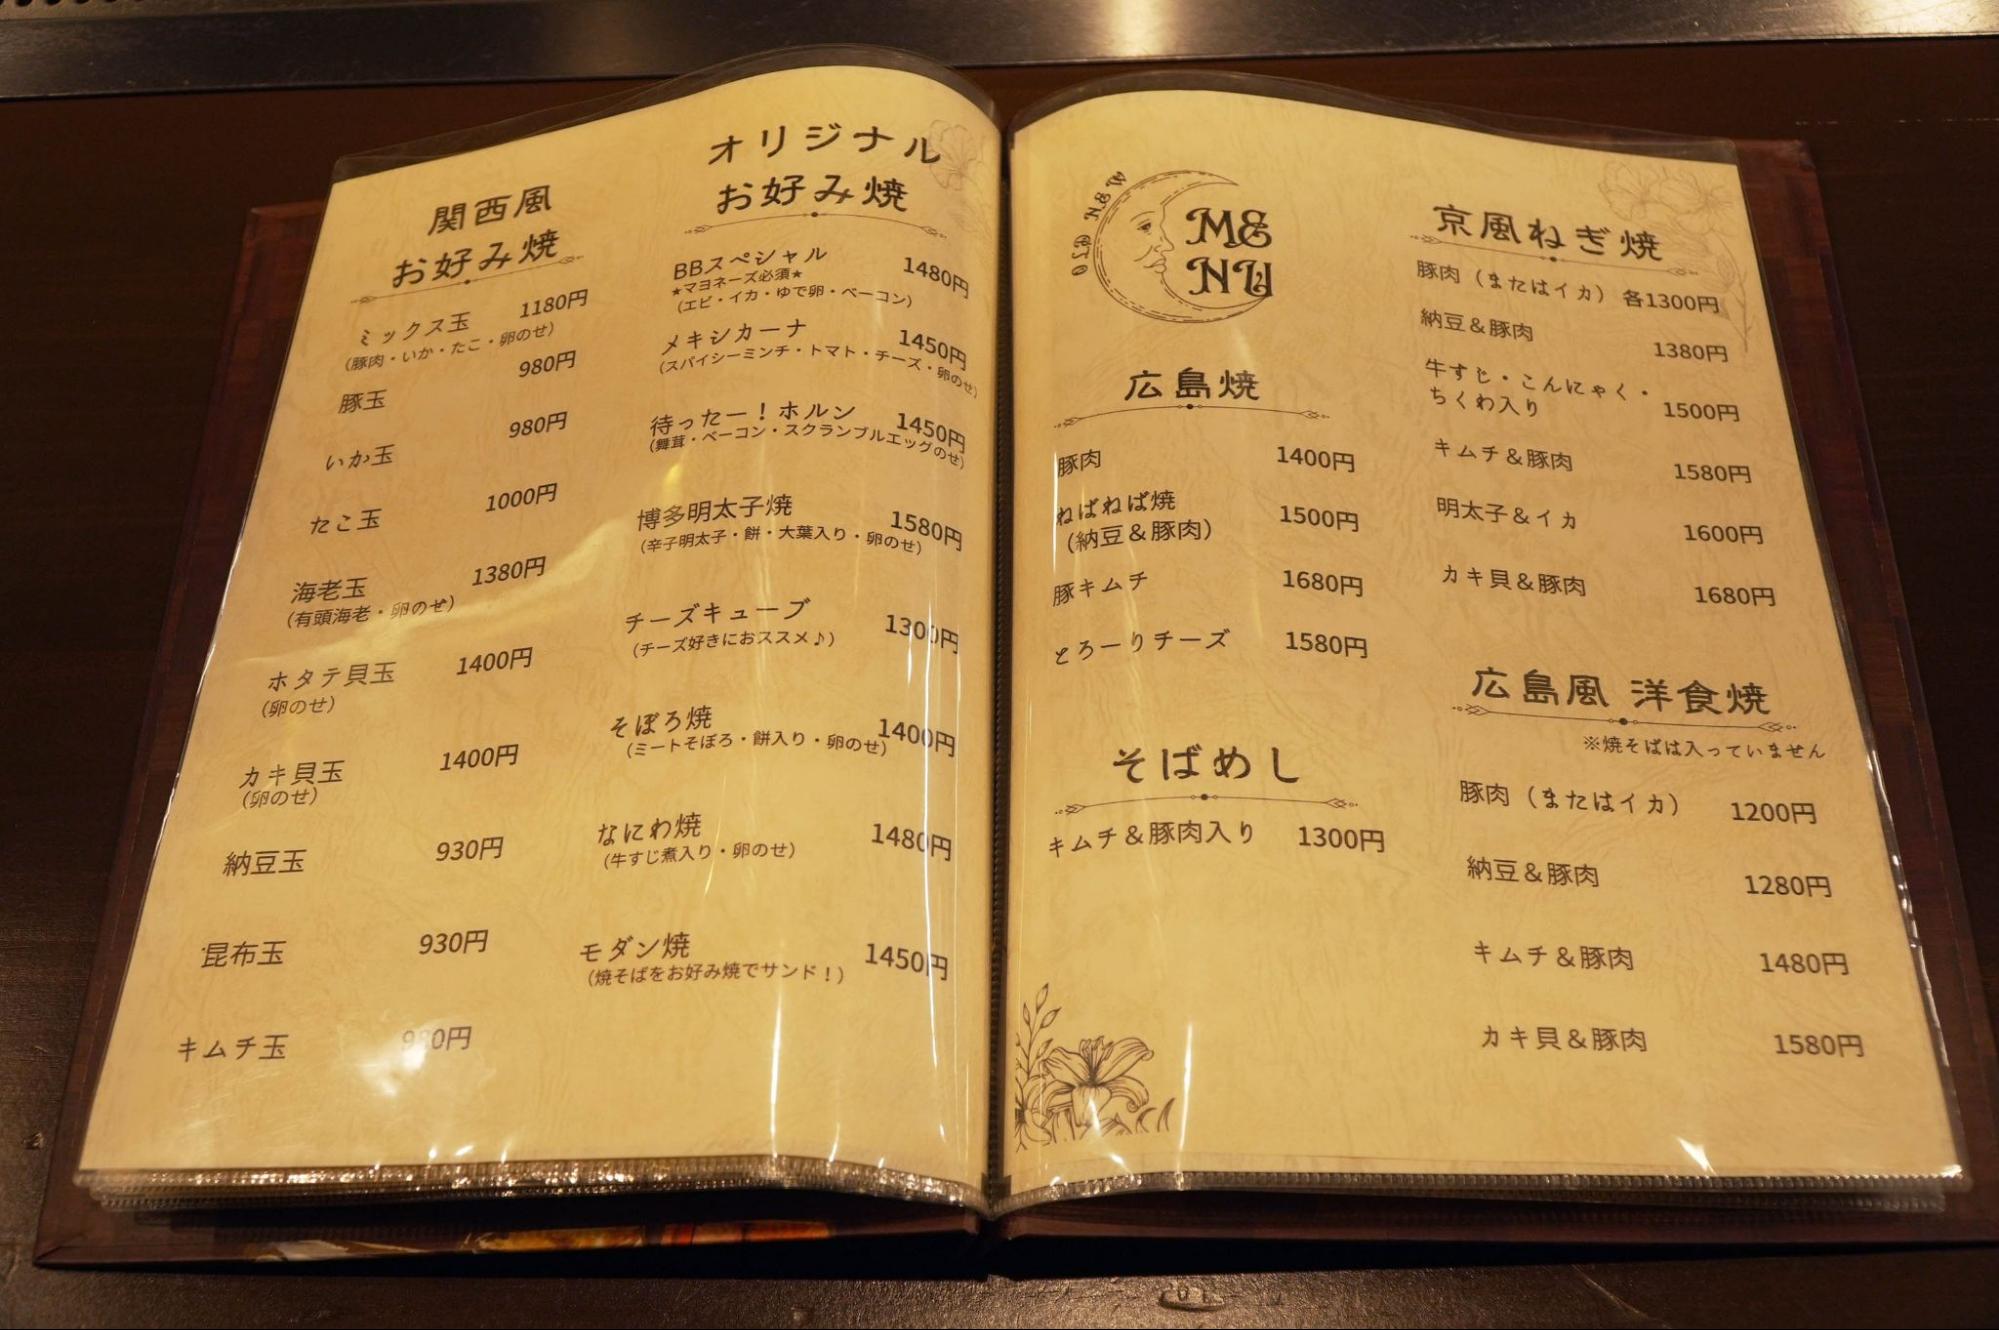 関西風
お好み焼
ミックス玉 1180円
（豚肉・いか・たこ・卵のせ）
豚玉 980円
いか玉 980円
たこ玉 1000円
海老玉 1380円
（有頭海老・卵のせ）
ホタテ貝玉 1400円
（卵のせ）
カキ貝玉 1400円
（卵のせ）
納豆玉 930円
昆布玉 930円
キムチ玉
オリジナル
お好み焼
BBスペシャル 1480円
★マヨネーズ必須★
（エビ・イカ・ゆで卵・ベーコン）
メキシカーナ 1450円
（スパイシーミンチ・トマト・チーズ・卵のせ）
待ったー！ホルン 1450円
（舞茸・ベーコン・スクランブルエッグのせ）
博多明太子焼 1580円
（辛子明太子・餅・大葉入り・卵のせ）
チーズキューブ 1300円
（チーズ好きにおススメ♪）
そぼろ焼 1400円
（ミートそぼろ・餅入り・卵のせ）
なにわ焼 1480円
（牛すじ煮入り・卵のせ）
モダン焼 1450円
（焼そばをお好み焼でサンド！）
ME
NU
広島焼
豚肉 1400円
ねばねば焼 1500円
（納豆＆豚肉）
豚キムチ 1680円
とろーりチーズ 1580円
そばめし
キムチ＆豚肉入り 1300円
京風ねぎ焼
豚肉（またはイカ） 各1300円
納豆＆豚肉 1380円
牛すじ・こんにゃく・
ちくわ入り 1500円
キムチ＆豚肉 1580円
明太子＆イカ 1600円
カキ貝＆豚肉 1680円
広島風 洋食焼
※焼そばは入っていません
豚肉（またはイカ） 1200円
納豆＆豚肉 1280円
キムチ＆豚肉 1480円
カキ貝＆豚肉 1580円